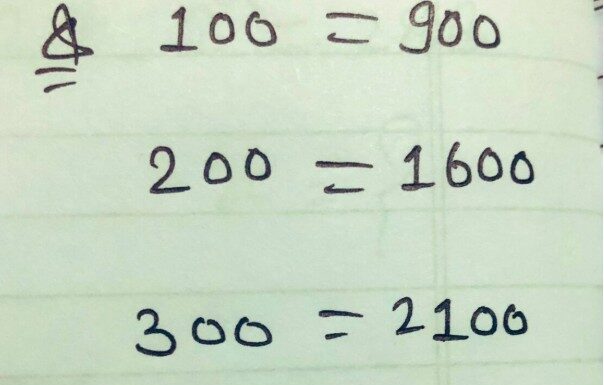 & 100 = 900
200 = 1600
300 = 2100